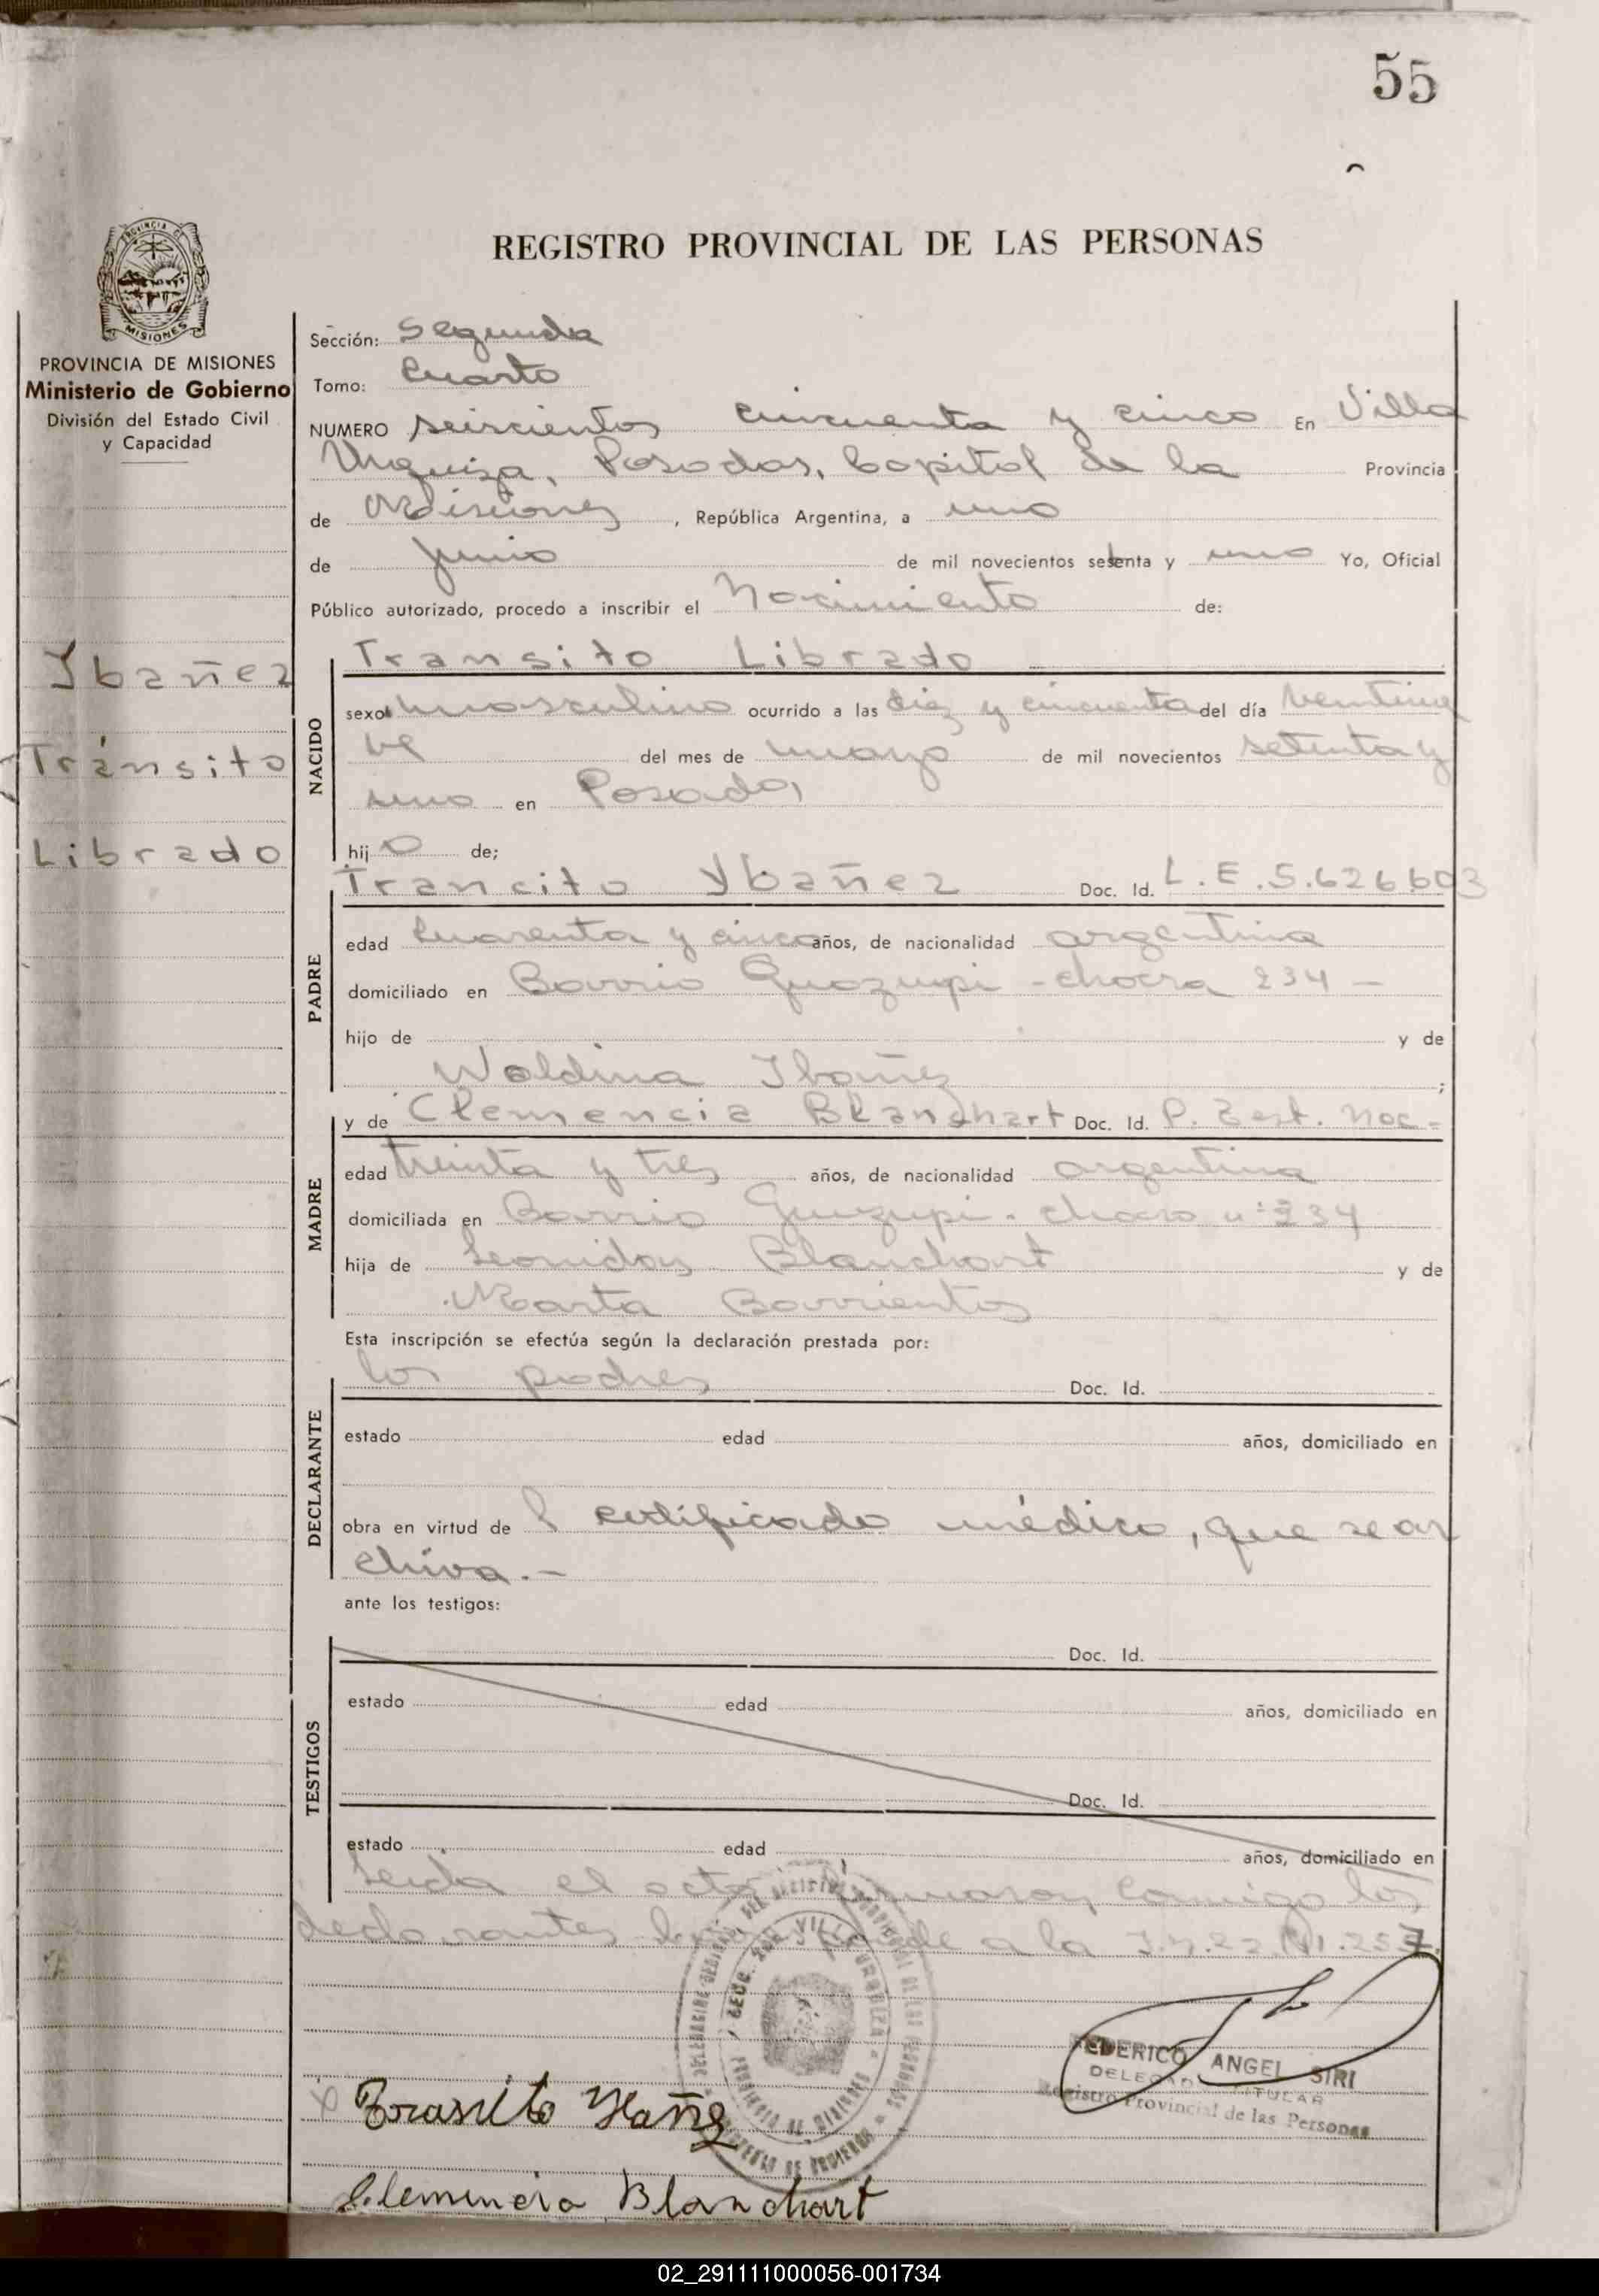 55
REGISTRO PROVINCIAL DE LAS PERSONAS
PROVINCIA DE MISIONES
Ministerio de Gobierno
División del Estado Civil
y Capacidad
Ybañez
Tránsito
Librado
Sección: Segunda
Tomo: Cuarto
NUMERO seiscientos cincuenta y cinco En Villa
Urquiza, Posadas, Capital de la Provincia
de Misiones, República Argentina, a uno
de junio de mil novecientos setenta y uno Yo, Oficial
Público autorizado, procedo a inscribir el Nacimiento de:
NACIDO
Transito Librado
sexo masculino ocurrido a las diez y cincuenta del día veintinue
ve del mes de mayo de mil novecientos setenta y
uno en Posadas
hijo de;
PADRE
Trancito Ybañez Doc. Id. L.E.5.626.603
edad cuarenta y cinco años, de nacionalidad argentina
domiciliado en Barrio Guazupi - chacra 234 -
hijo de y de
Waldina Ibañez ;
MADRE
y de Clemencia Blanchart Doc. Id. P. Test. Nac-
edad treinta y tres años, de nacionalidad argentina
domiciliada en Barrio Guazupi - chacra n° 234
hija de Leonidas Blanchart y de
Marta Barrientos
Esta inscripción se efectúa según la declaración prestada por:
DECLARANTE
los padres Doc. Id.
estado edad años, domiciliado en
obra en virtud de l certificado médico, que se ar
chiva.-
ante los testigos:
TESTIGOS
Doc. Id.
estado edad años, domiciliado en
Doc. Id.
estado edad años, domiciliado en
Leida el acta firmaron conmigo los
declarantes a la
FEDERICO ANGEL SIRI
DELEGADO TITULAR
Registro Provincial de las Personas
Clemencia Blanchart
02_291111000056-001734